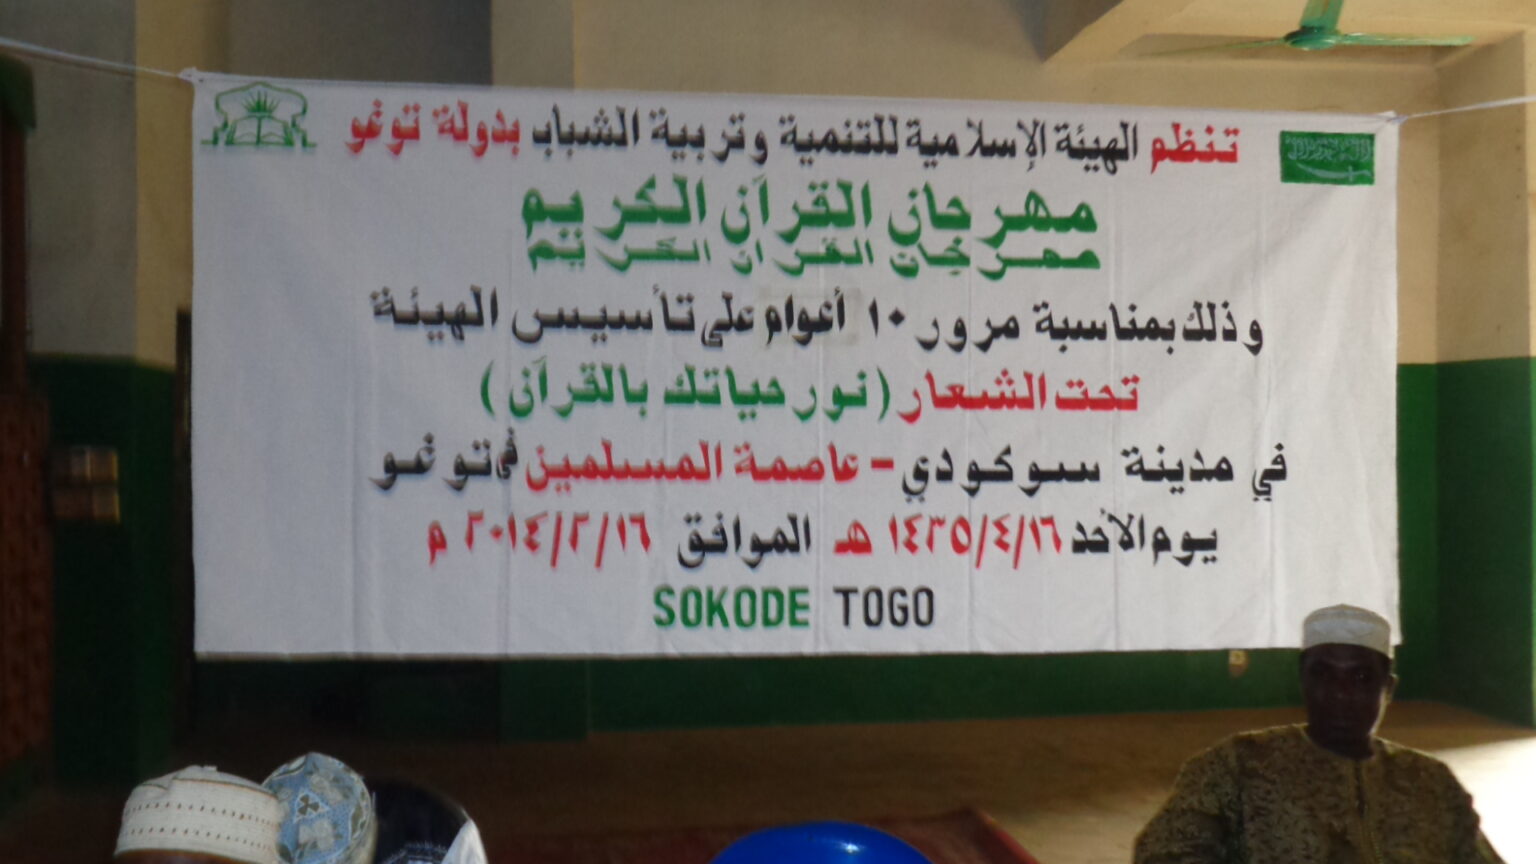 تنظم الهيئة الإسلامية للتنمية وتربية الشباب بدولة توغو
مهرجان القرآن الكريم
وذلك بمناسبة مرور ١٠ أعوام على تأسيس الهيئة
تحت الشعار (نور حياتك بالقرآن)
في مدينة سوكودي - عاصمة المسلمين في توغو
يوم الأحد ١٤٣٥/٤/١٦ هـ الموافق ٢٠١٤/٢/١٦ م
SOKODE TOGO